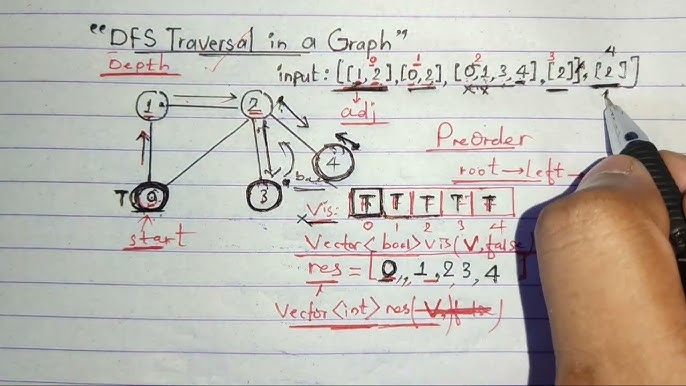 "DFS Traversal in a Graph"
Depth
input: [[1,2],[0,2],[0,1,3,4],[2],[2]]
0 1 2 3 4
adj
1 2
PreOrder
4
root → left →
T 0 3
Vis: T T T T T
start
0 1 2 3 4
Vector<bool> vis(V, false
res = [0, 1, 2 3, 4 ]
Vector<int> res(V, false)